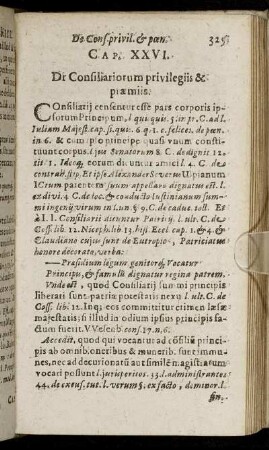 De Conf. privil. & pœn. 325
CAP. XXVI.
De Consiliariorum privilegiis &
præmiis.
COnsiliarij censentur esse pars corporis ip-
sorum Principum, l. qui quis. 5. in pr. C. ad l.
Iuliam Majest. cap. si. qui. 6. q. 1. c. felices. de pœn.
in 6. & cum ipso principe quasi unum consti-
tuunt corpus. l. jus Senatorum 8. C. de dignit. 12
tit. 1. Ideoq; eorum dicuntur amici l. 4. C. de
contrah. stip. Et ipse Alexander Severus Vlpianum
ICtum parentem suum appellare dignatus est. l.
ex divi. 4. C. de loc. & conducto Iustinianum sum-
mi ingenii virum in l. un. § 9. C. de caduc. toll. Et
à l. l. Consiliarii dicuntur Patricij. l. ult. C. de
Coss. lib. 12. Niceph. lib 13. hist. Eccl cap. 1. & 4. &
Claudiano cujus sunt de Eutropio, Patriciatus
honore decorato, verba:
—— Præsidium legum genitorq; Vocatur
Principis, & famulũ dignatur regina patrem.
Vnde est, quod Consiliarij summi principis
liberati sunt patria potestatis nexu l. ult. C. de
Coss. lib. 12. Inq; eos committitur crimen læsæ
majestatis, si illud in odium ipsius principis fa-
ctum fuerit. V Vesenb. cons. 27. n. 6.
Accedit, quod qui vocantur ad cõsiliũ princi-
pis ab omnib. oneribus & munerib. sunt immu-
nes, nec ad decurionatũ aut similẽ magistratum
vocari possunt l. jurisperitos. 33. l. administrantes
44. de excus. tut. l. verum §. ex facto, de minor. l.
fin.